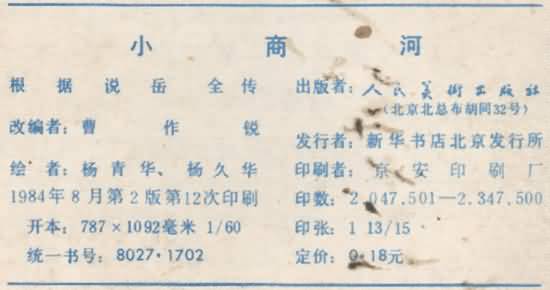 小商河
根据说岳全传
改编者：曹作锐
绘者：杨青华、杨久华
1984年8月第2版第12次印刷
开本：787×1092毫米 1/60
统一书号：8027·1702
出版者：人民美术出版社
（北京北总布胡同32号）
发行者：新华书店北京发行所
印刷者：京安印刷厂
印数：2,047,501—2,347,500
印张：1 13/15
定价：0·18元